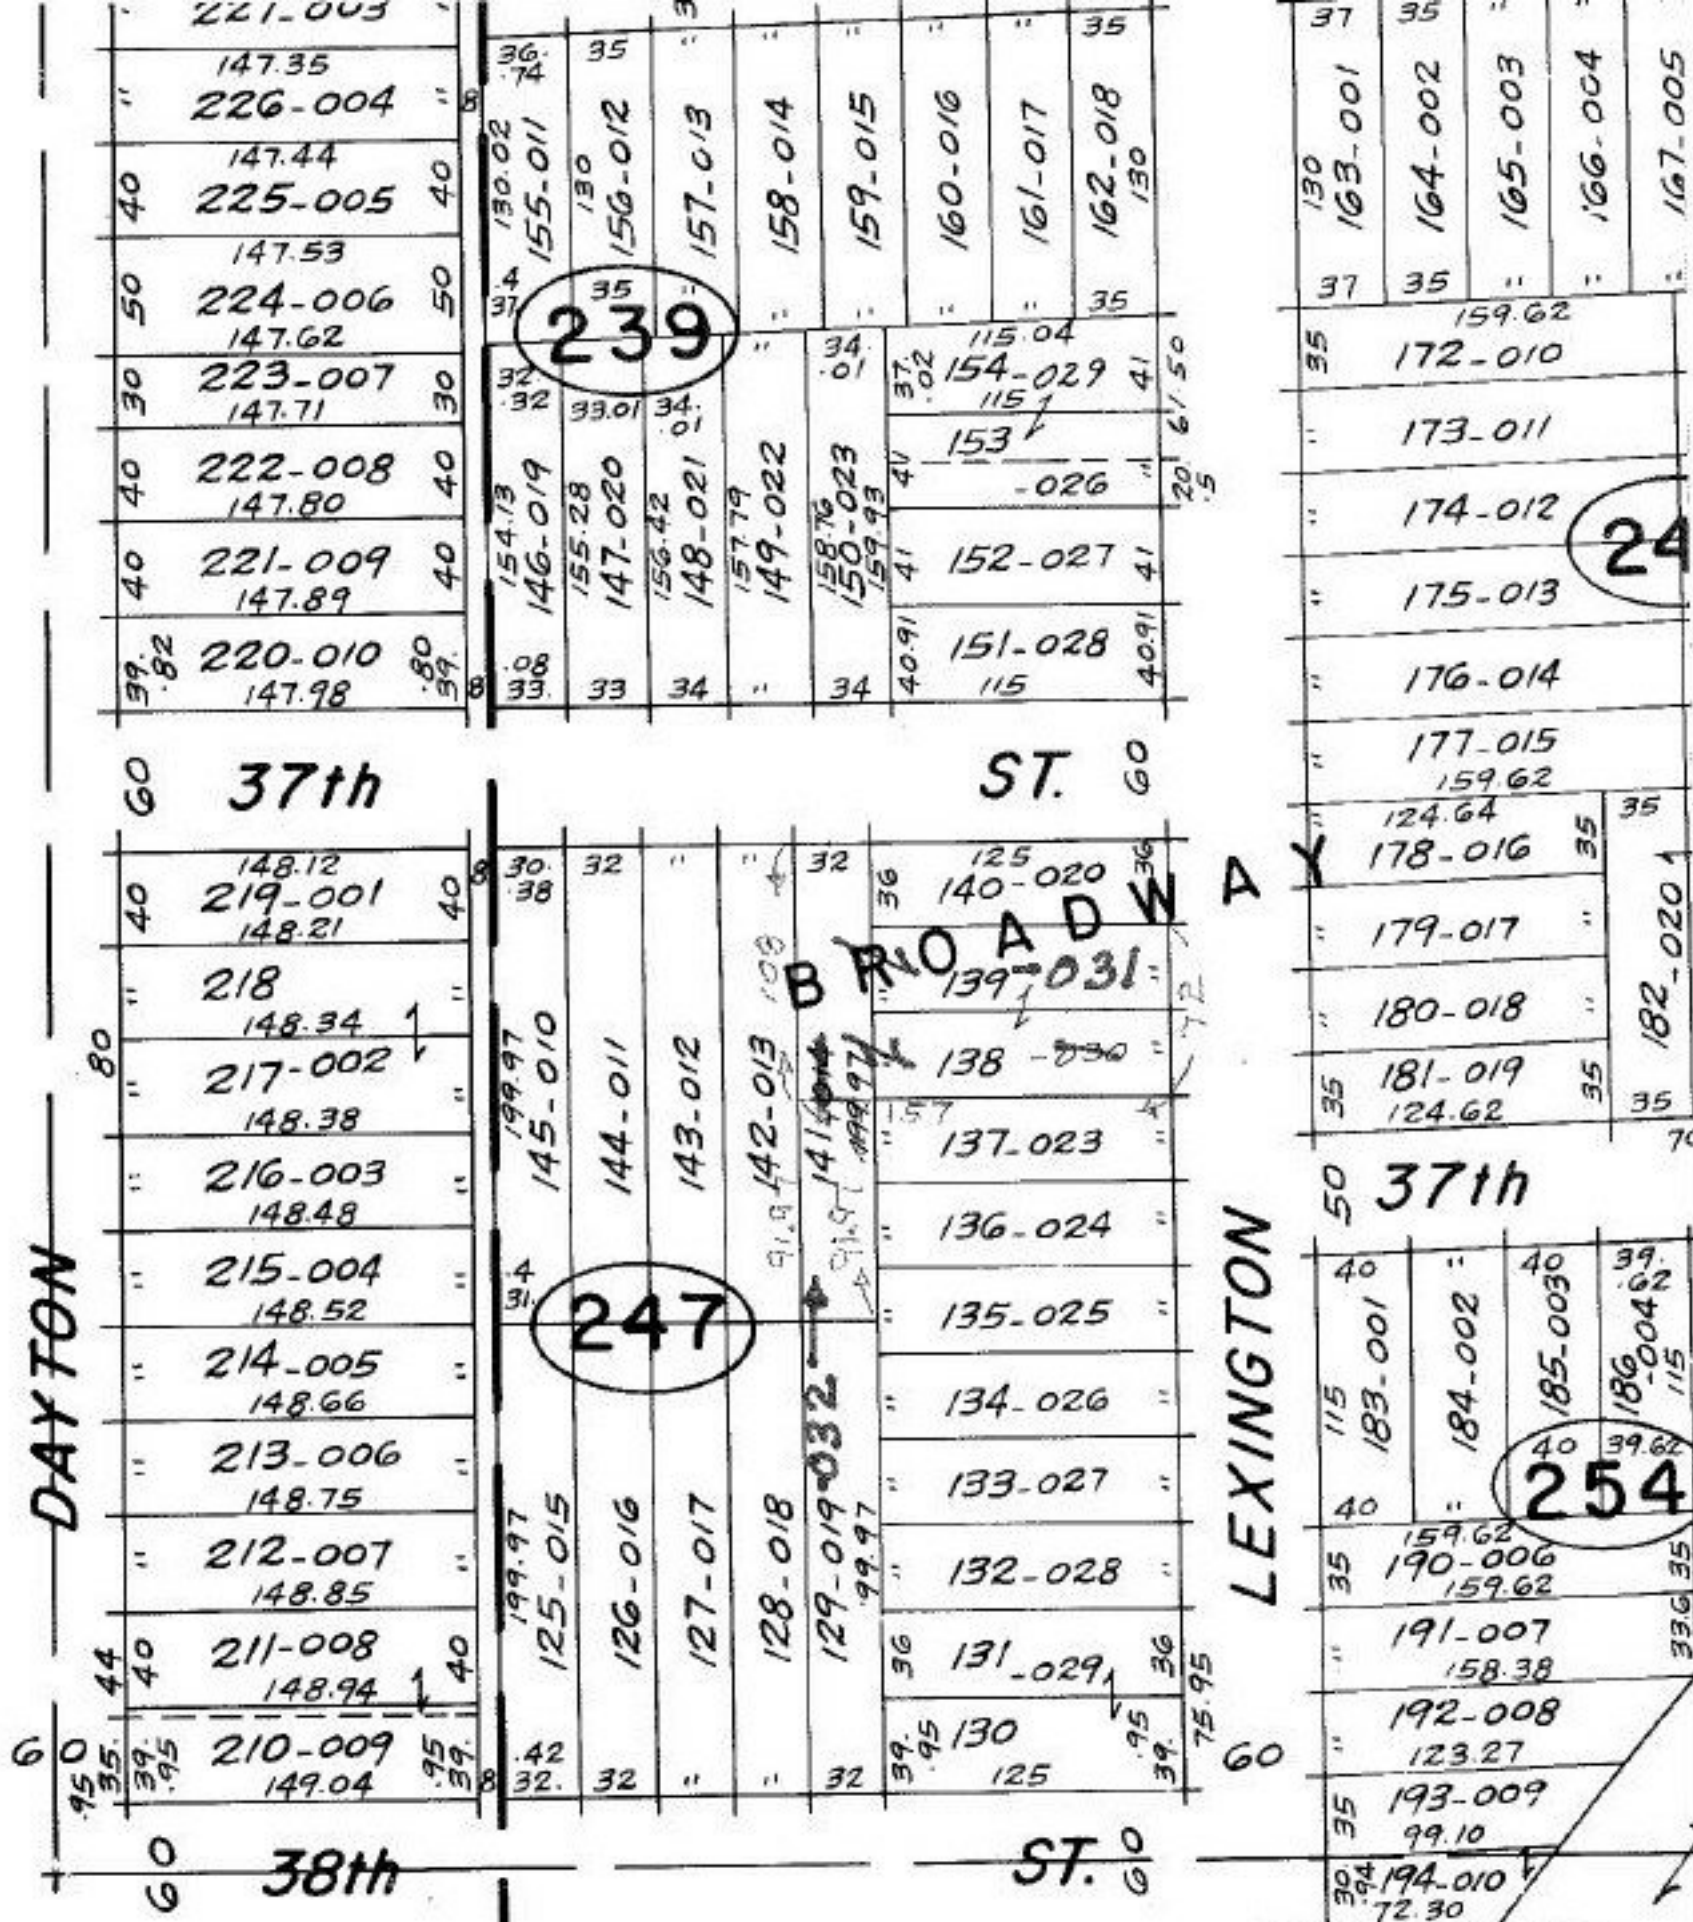 221-003
147.35
226-004
147.44
40 225-005 40
147.53
50 224-006 50
147.62
30 223-007 30
147.71
40 222-008 40
147.80
40 221-009 40
147.89
39.82 220-010 39.80
147.98
8
8
36.74
35
"
"
"
"
"
35
130.02
155-011
130
156-012
157-013
158-014
159-015
160-016
161-017
162-018
130
37.4
35
"
"
"
"
"
35
239
32.32
33.01
34.01
"
34.01
154.13
146-019
155.28
147-020
156.42
148-021
157.79
149-022
158.76
150-023
159.93
33.08
33
34
"
34
115.04
37.02 154-029 41
115
153
41 -026 "
61.50
20.5
41 152-027 41
40.91 151-028 40.91
115
37 35 " "
130
163-001
164-002
165-003
166-004
167-005
37 35 " " "
159.62
35 172-010
" 173-011
" 174-012
24
" 175-013
" 176-014
" 177-015
159.62
124.64
" 178-016 35
" 179-017 "
" 180-018 "
35 181-019 35
124.62
35
182-020
35
60 37th ST. 60
148.12
40 219-001 40
148.21
" 218 "
148.34
" 217-002 "
148.38
" 216-003 "
148.48
" 215-004 "
148.52
" 214-005 "
148.66
" 213-006 "
148.75
" 212-007 "
148.85
40 211-008 40
148.94
39.95 210-009 39.95
149.04
80
44
35.95
60
8
8
DAYTON
30.38
32
"
"
32
108
199.97
145-010
144-011
143-012
142-013
141-014
199.97
91.97
91.97
31.4
247
032
199.97
125-015
126-016
127-017
128-018
129-019
99.97
32.42
32
"
"
32
BROADWAY
125
36 140-020 36
139-031 "
72
138 -030 "
157
" 137-023 "
" 136-024 "
" 135-025 "
" 134-026 "
" 133-027 "
" 132-028 "
36 131-029 36
39.95 130 39.95
125
75.95
LEXINGTON
60
50 37th
40 " 40 39.62
115
183-001
184-002
185-003
186-004
115
40 " 40 39.62
254
159.62
35 190-006 35
159.62
" 191-007
158.38
33.6
" 192-008
123.27
35 193-009
99.10
30.94 194-010
72.30
60 38th ST. 60